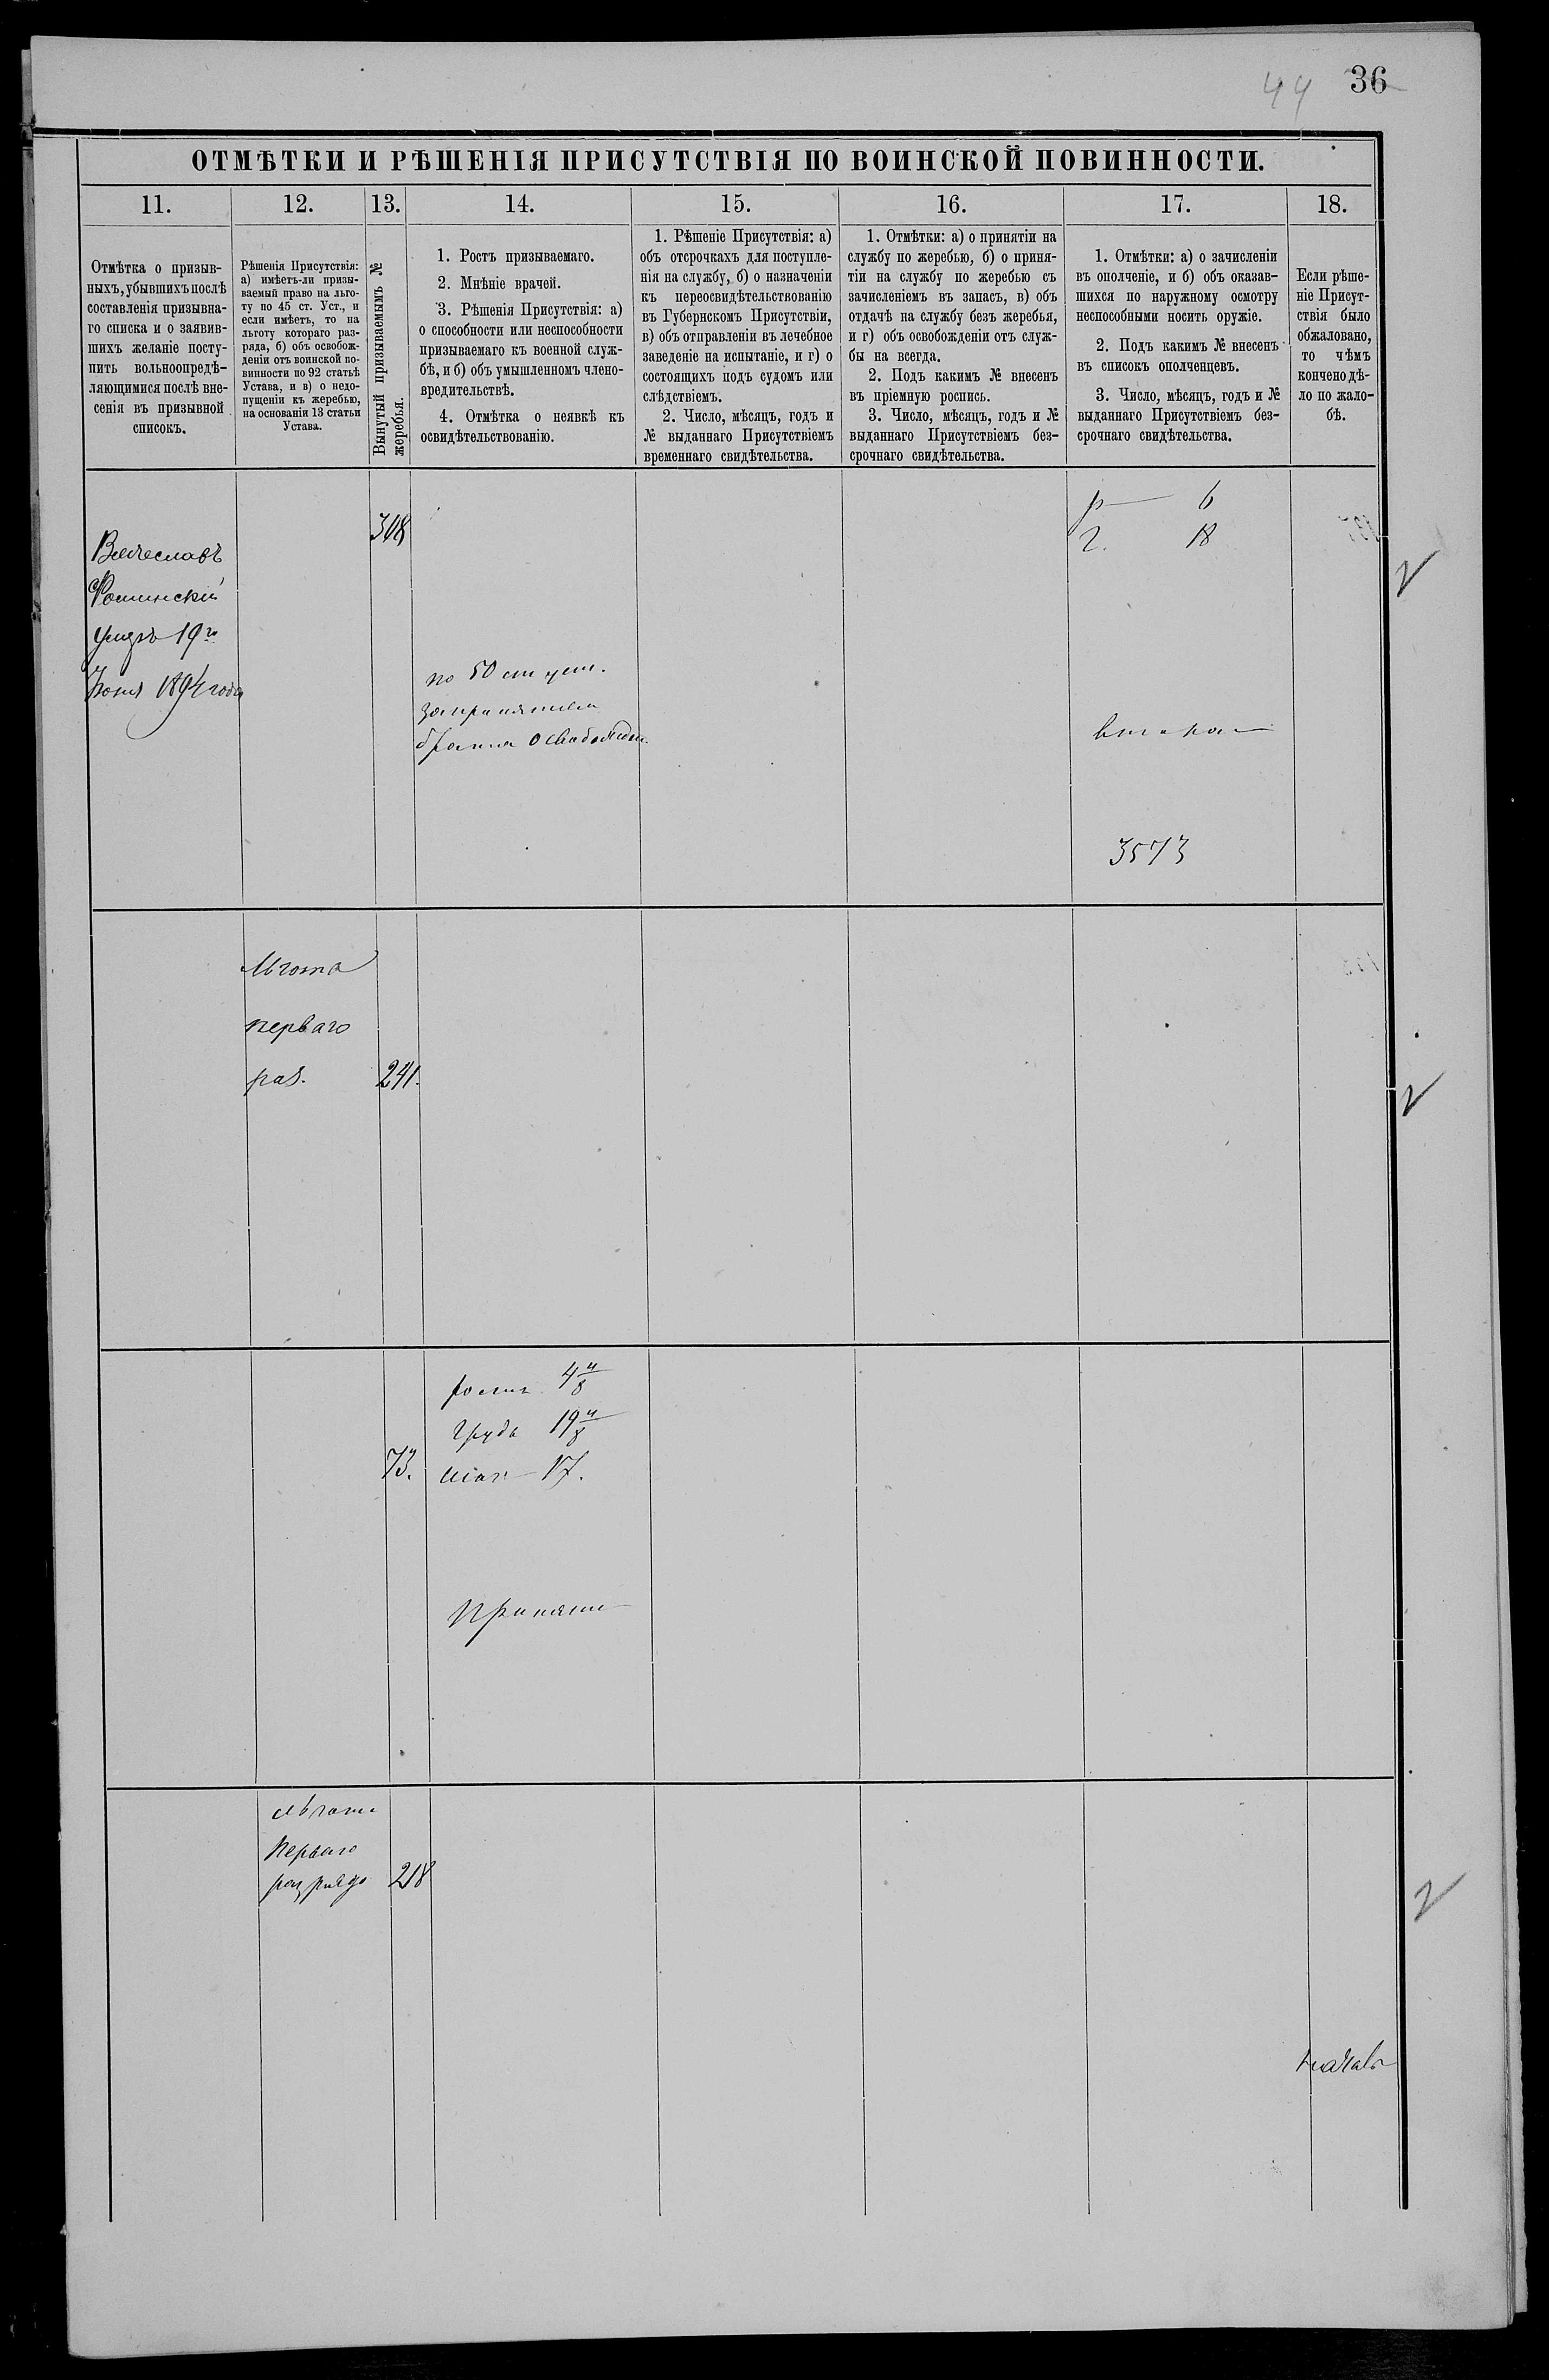 44 36
ОТМѢТКИ И РѢШЕНІЯ ПРИСУТСТВІЯ ПО ВОИНСКОЙ ПОВИННОСТИ.
11. 12. 13. 14. 15. 16. 17. 18.
Отмѣтка о призыв-
ныхъ, убывшихъ послѣ
составленія призывна-
го списка и о заявив-
шихъ желаніе посту-
пить вольноопредѣ-
ляющимися послѣ вне-
сенія въ призывной
списокъ.
Рѣшенія Присутствія:
а) имѣетъ-ли призы-
ваемый право на льго-
ту по 45 ст. Уст., и
если имѣетъ, то на
льготу котораго раз-
ряда, б) объ освобож-
деніи отъ воинской по-
винности по 92 статьѣ
Устава, и в) о недо-
пущеніи къ жеребью,
на основаніи 13 статьи
Устава.
Вынутый призываемымъ №
жеребья.
1. Ростъ призываемаго.
2. Мнѣніе врачей.
3. Рѣшенія Присутствія: а)
о способности или неспособности
призываемаго къ военной служ-
бѣ, и б) объ умышленномъ члено-
вредительствѣ.
4. Отмѣтка о неявкѣ къ
освидѣтельствованію.
1. Рѣшеніе Присутствія: а)
объ отсрочкахъ для поступле-
нія на службу, б) о назначеніи
къ переосвидѣтельствованію
въ Губернскомъ Присутствіи,
в) объ отправленіи въ лечебное
заведеніе на испытаніе, и г) о
состоящихъ подъ судомъ или
слѣдствіемъ.
2. Число, мѣсяцъ, годъ и
№ выданнаго Присутствіемъ
временнаго свидѣтельства.
1. Отмѣтки: а) о принятіи на
службу по жеребью, б) о приня-
тіи на службу по жеребью съ
зачисленіемъ въ запасъ, в) объ
отдачѣ на службу безъ жеребья,
и г) объ освобожденіи отъ служ-
бы на всегда.
2. Подъ какимъ № внесенъ
въ пріемную роспись.
3. Число, мѣсяцъ, годъ и №
выданнаго Присутствіемъ без-
срочнаго свидѣтельства.
1. Отмѣтки: а) о зачисленіи
въ ополченіе, и б) объ оказав-
шихся по наружному осмотру
неспособными носить оружіе.
2. Подъ какимъ № внесенъ
въ списокъ ополченцевъ.
3. Число, мѣсяцъ, годъ и №
выданнаго Присутствіемъ без-
срочнаго свидѣтельства.
Если рѣше-
ніе Присут-
ствія было
обжаловано,
то чѣмъ
кончено дѣ-
ло по жало-
бѣ.
Вячеславъ
19го
Іюня 1894 года
308
по 50 ст уст.
брата освобожден.
р — 6
г. 18
3573
Льгота
перваго
раз. 241.
ростъ 4 4/8
грудь 19 4/8
73. шаг 17.
Принятъ
льгота
перваго
разряда 218